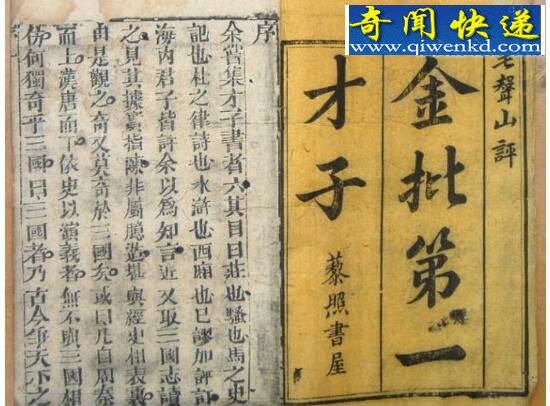 奇闻快递
www.qiwenkd.com
毛聲山評
金批第一
才子
藜照書屋
序
余嘗集才子書者六其目曰莊也騷也馬之史
記也杜之律詩也水滸也西廂也已謬加評訂
海內君子皆許余以爲知言近又取三國志讀
之見其據實指陳非屬臆造堪與經史相表裏
由是觀之奇又莫奇於三國矣或曰凡自周秦
而上漢唐而下依史以演義者無不與三國相
仿何獨奇乎三國曰三國者乃古今爭天下之